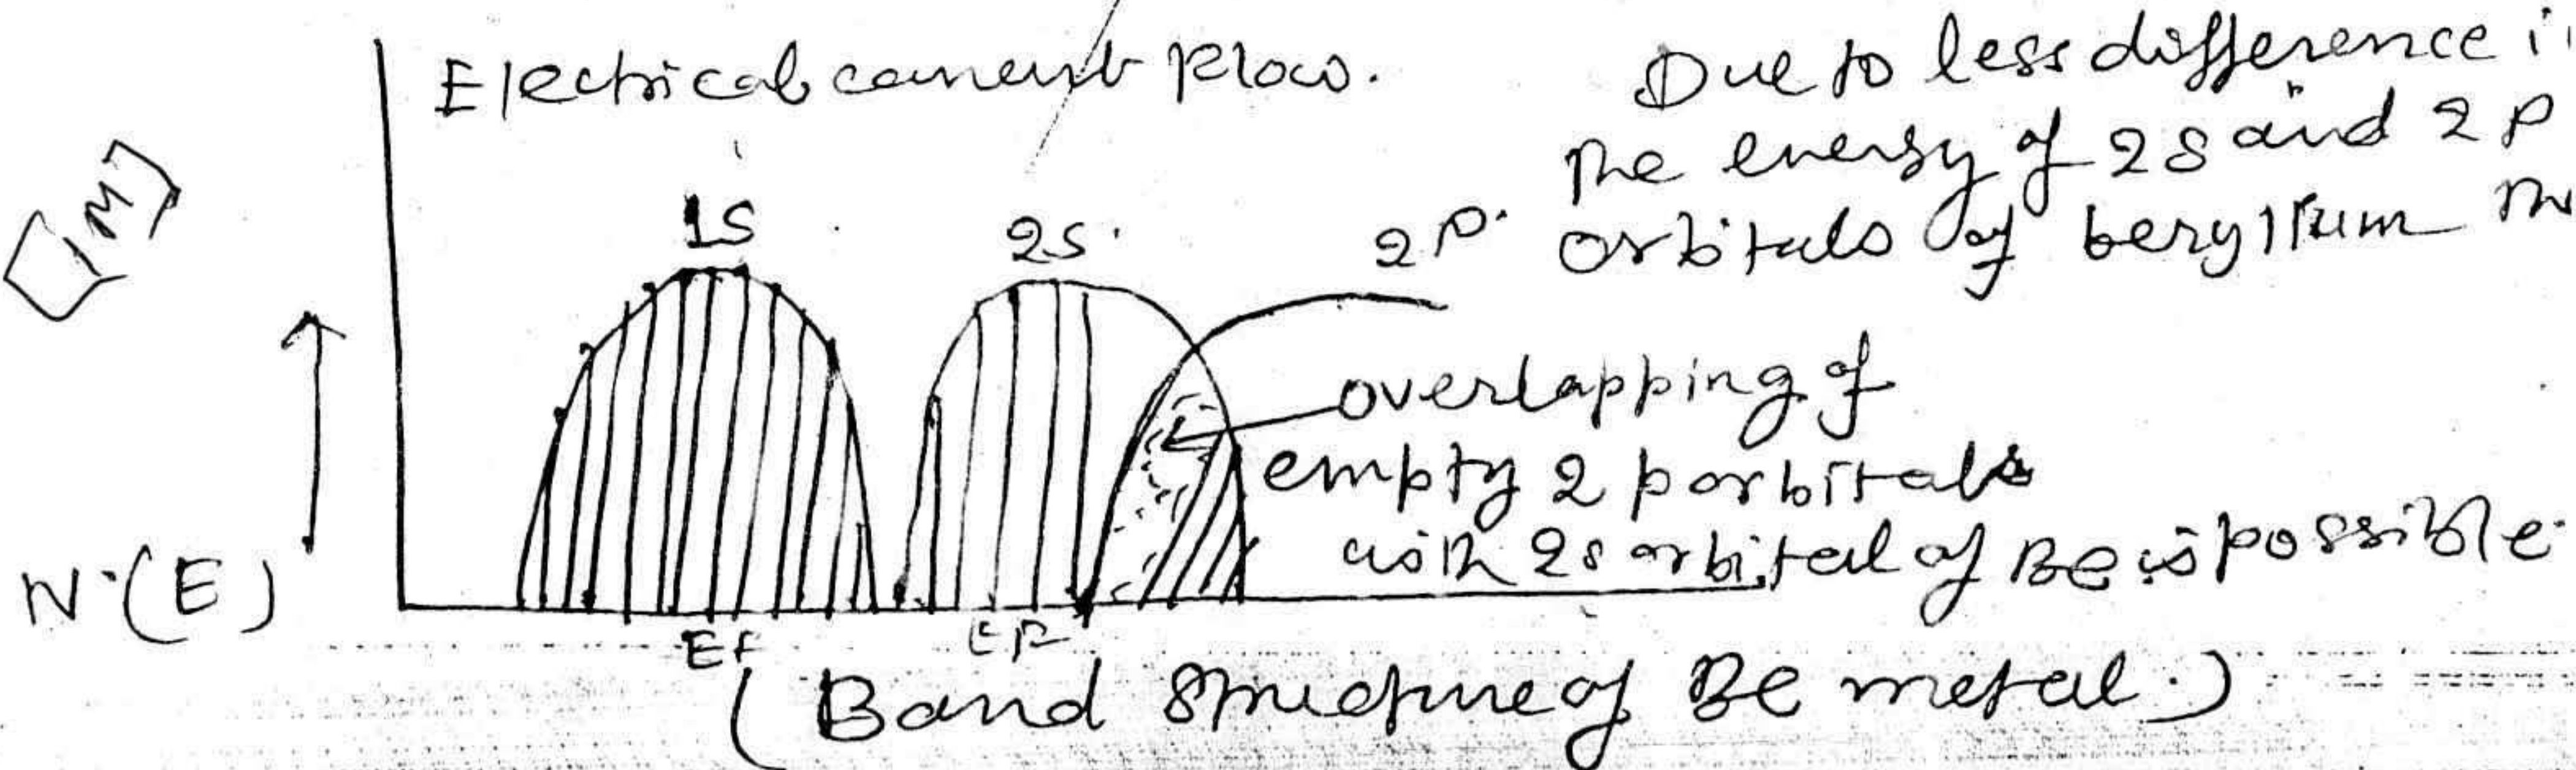 Electrical current flow.
Due to less difference i
the energy of 2s and 2p
orbitals of beryllium th
[M]
1S
2S.
2p.
overlapping of
empty 2p orbitals
with 2s orbital of Be is possible.
N.(E)
EF
EF
(Band structure of Be metal.)